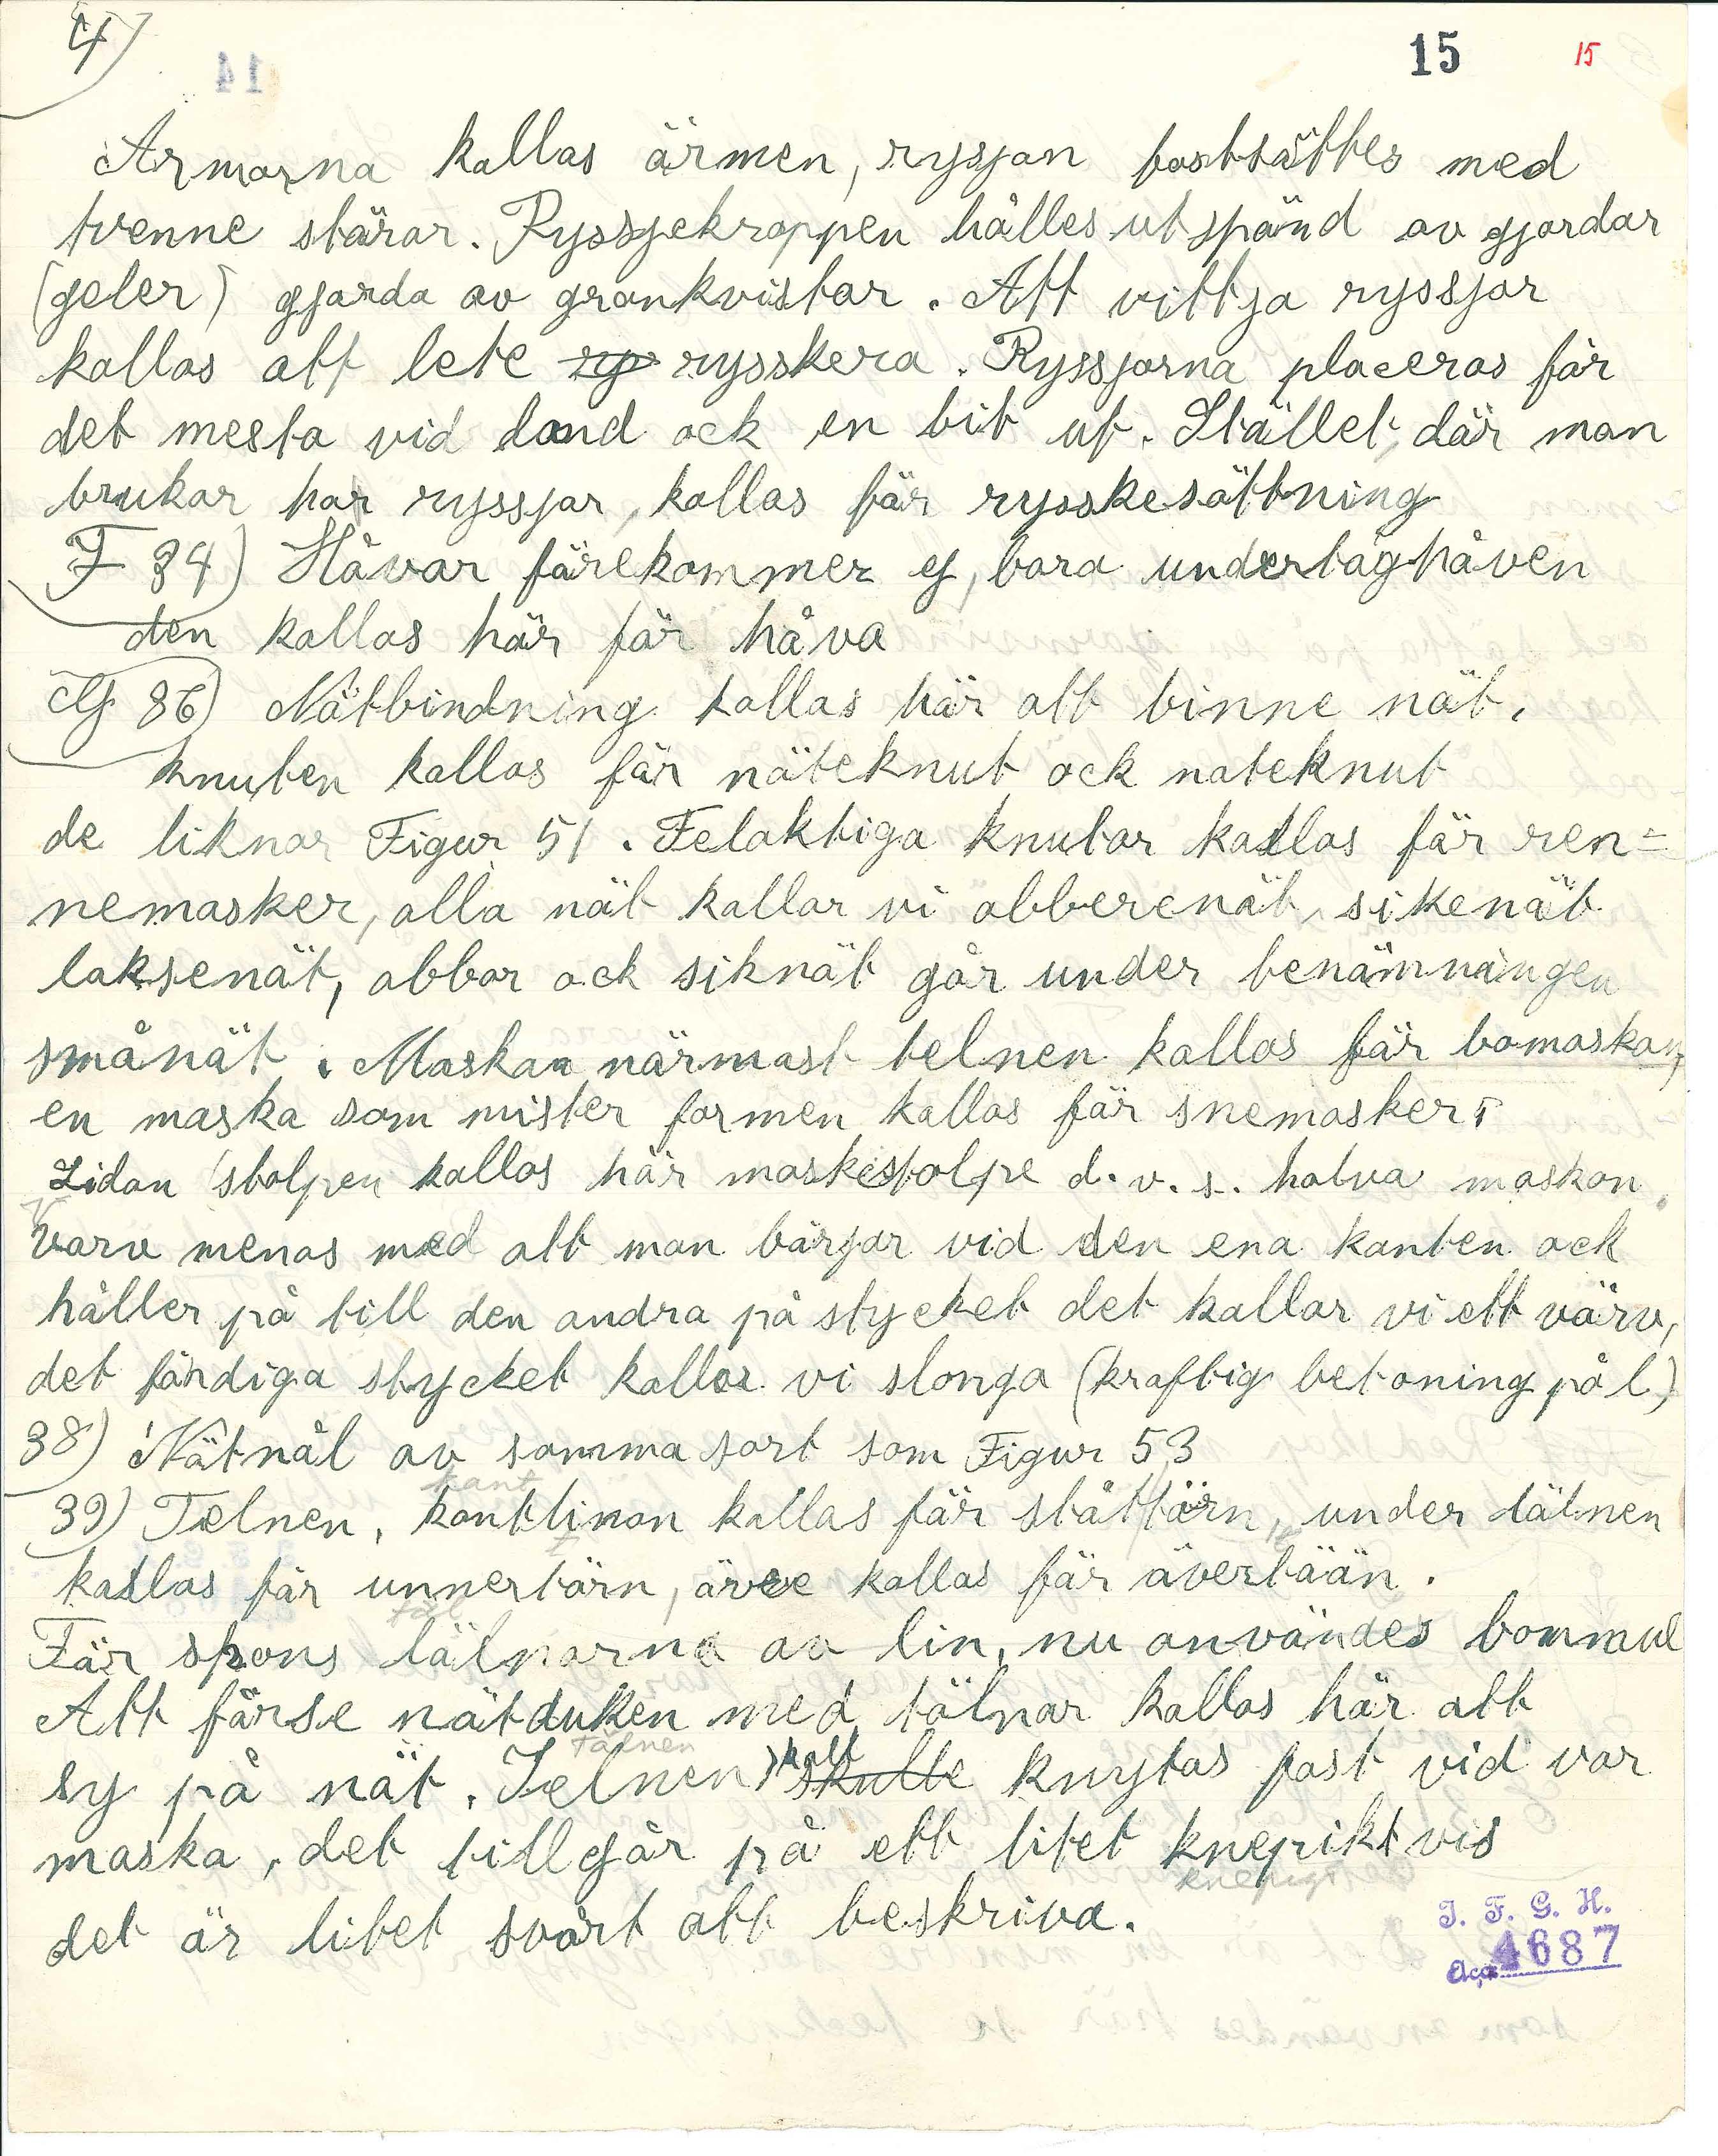 4)
15 15
Armarna kallas ärmen, rysjan fastsättes med
tvenne stärar. Ryssjekroppen hålles utspänd av gjordar
(geler) gjorda av grankvistar. Att vittja ryssjor
kallas att lete ry rysskera. Ryssjorna placeras får
det mesta vid land ock en bit ut. Stället, där man
brukar har ryssjor, kallas får rysskesättning
F 84) Håvar förekommer ej, bara undertaghåven
den kallas här får håva
G 86) Nätbindning kallas här att binne nät.
knuten kallas får näteknut ock nateknut
de liknar Figur 51. Felaktiga knutar kallas får ren=
nemasker, alla nät kallar vi abberenät, sikenät
laksenät, abbor ock siknät går under benämningen
smånät. Maskan närmast telnen kallas får bomaskan,
en maska som mister formen kallas får snemasker.
Sidan stolpen kallas här maskestolpe d.v.s. halva maskan.
Varv menas med att man börjar vid den ena kanten ock
håller på till den andra på stycket det kallar vi ett värv,
det färdiga stycket kallar vi slonga (kraftig betoning på l)
38) Nätnål av samma sort som Figur 53
kant
39) Telnen, kantlinan kallas får ståttärn, under tälnen
kallas får unnertärn, övre kallas får övertään.
Får spons tälnarna av lin, nu användes bommul
Att förse nätduken med tälnar kallas här att
tälnen skall
sy på nät. Telnen skulle knytas fast vid var
maska, det tillgår på ett litet knepikt vis
knepigt
det är litet svårt att beskriva.
I. F. G. H.
Acc. 4687